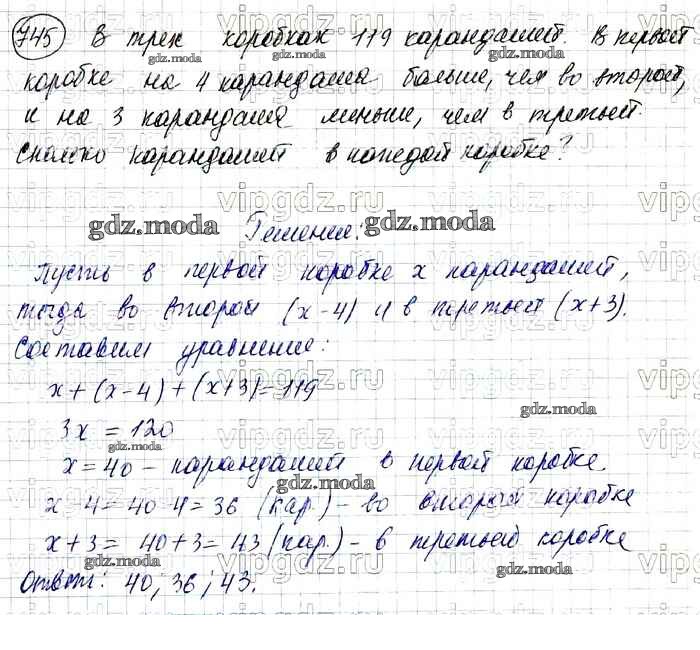 745 В трех коробках 119 карандашей. В первой
коробке на 4 карандаша больше, чем во второй,
и на 3 карандаша меньше, чем в третьей.
Сколько карандашей в каждой коробке?
Решение:
Пусть в первой коробке x карандашей,
тогда во второй (x-4) и в третьей (x+3).
Составим уравнение:
x+(x-4)+(x+3)=119
3x=120
x=40 - карандашей в первой коробке.
x-4=40-4=36 (кар.) - во второй коробке
x+3=40+3=43 (кар.) - в третьей коробке
Ответ: 40; 36; 43.
vipgdz.ru
gdz.moda